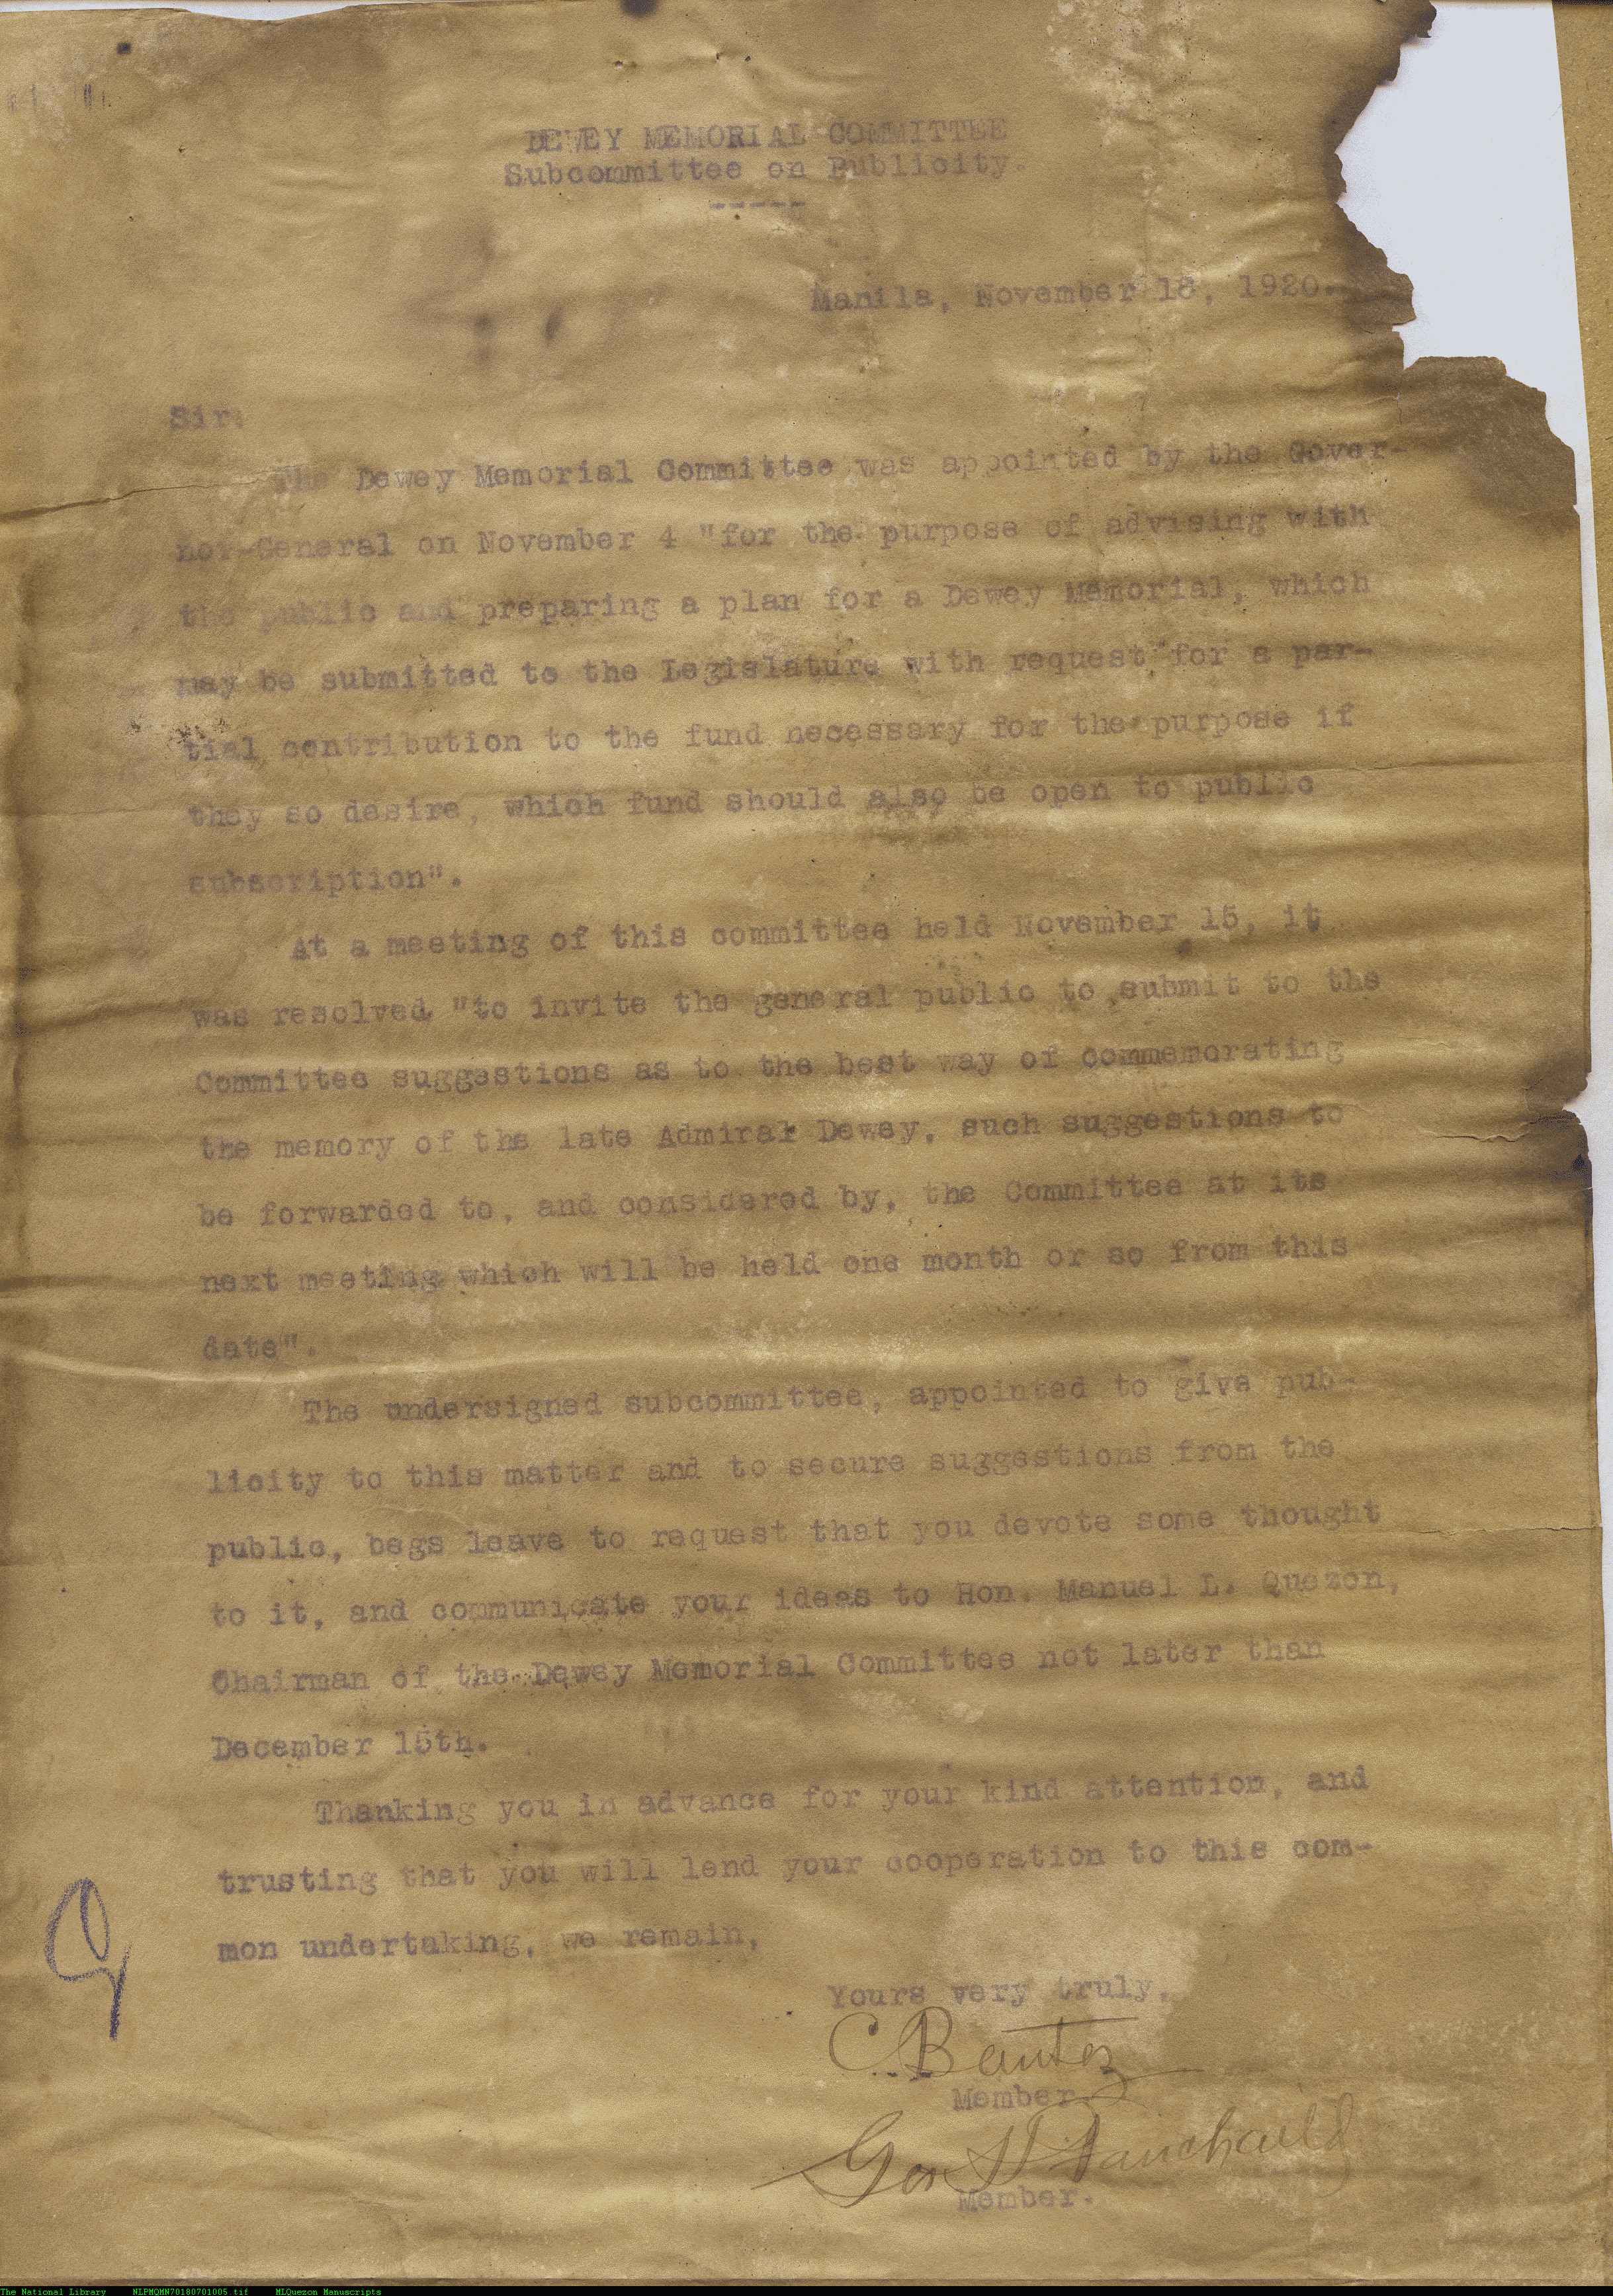 DEWEY MEMORIAL COMMITTEE
Subcommittee on Publicity.
-----
Manila, November 18, 1920.
Sir:
The Dewey Memorial Committee was appointed by the Gover-
nor-General on November 4 "for the purpose of advising with
the public and preparing a plan for a Dewey Memorial, which
may be submitted to the Legislature with request for a par-
tial contribution to the fund necessary for the purpose if
they so desire, which fund should also be open to public
subscription".
At a meeting of this committee held November 15, it
was resolved "to invite the general public to submit to the
Committee suggestions as to the best way of commemorating
the memory of the late Admiral Dewey, such suggestions to
be forwarded to, and considered by, the Committee at its
next meeting which will be held one month or so from this
date".
The undersigned subcommittee, appointed to give pub-
licity to this matter and to secure suggestions from the
public, begs leave to request that you devote some thought
to it, and communicate your ideas to Hon. Manuel L. Quezon,
Chairman of the Dewey Memorial Committee not later than
December 15th.
Thanking you in advance for your kind attention, and
trusting that you will lend your cooperation to this com-
mon undertaking, we remain,
Yours very truly,
C Benitez
Member
Geo
Member.
The National Library NLPMQMN70180701005.tif MLQuezon Manuscripts